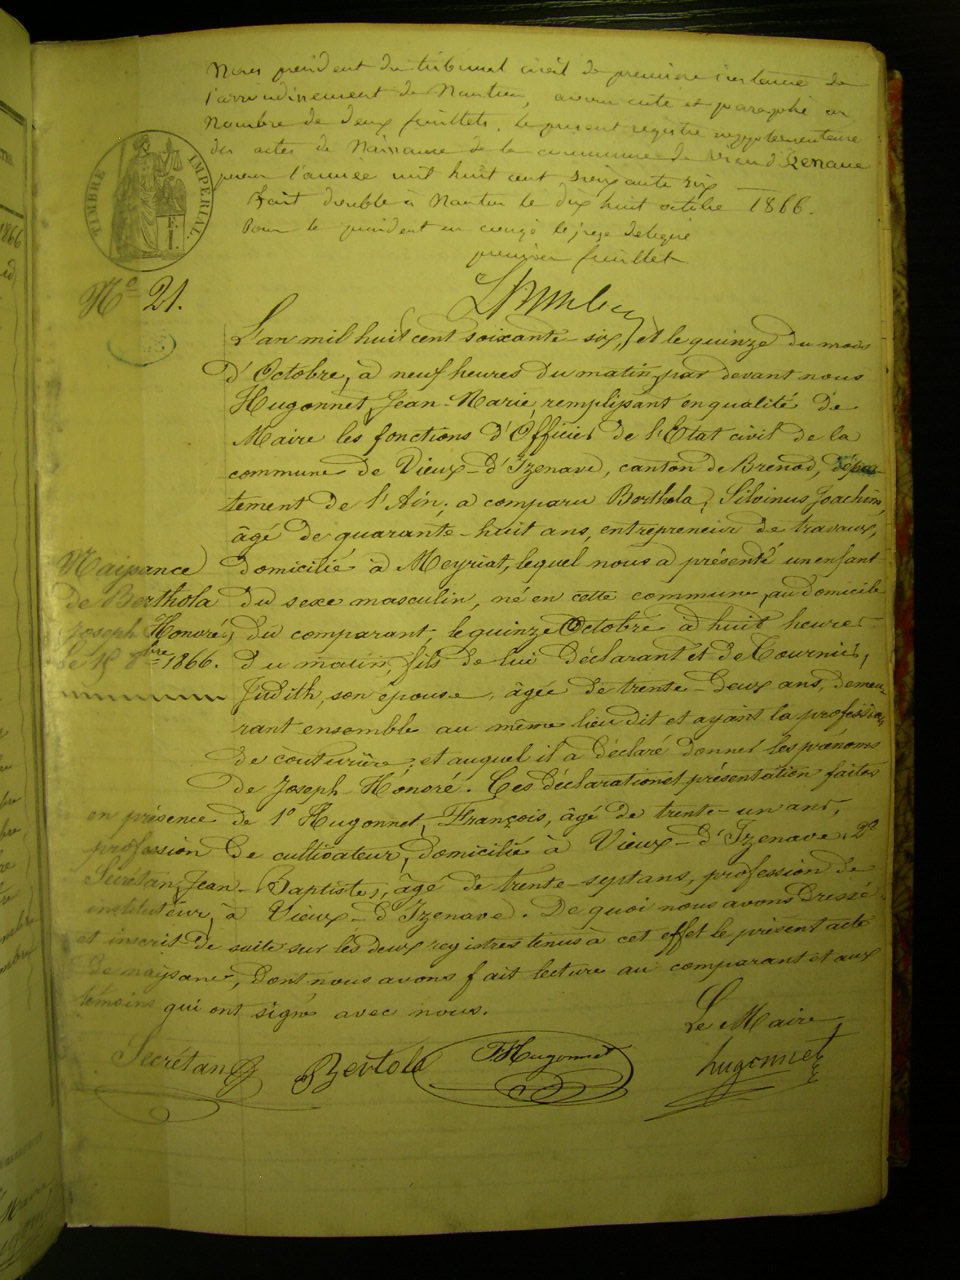 Nous président du tribunal civil de première instance de
l'arrondissement de Nantua, avons coté et paraphé au
nombre de deux feuillets, le présent registre supplémentaire
des actes de Naissance de la commune de Vieu d'Izenave
pour l'année mil huit cent soixante six
Fait double à Nantua le dix huit octobre 1866.
Pour le président en congé le juge délégué
premier feuillet
TIMBRE IMPERIAL
F. 1.
No 21.
L'an mil huit cent soixante-six, et le quinze du mois
d'Octobre, à neuf heures du matin, par devant nous
Hugonnet, Jean-Marie remplissant en qualité de
Maire les fonctions d'Officier de l'Etat civil de la
commune de Vieux-d'Izenave, canton de Brénod, dépar-
tement de l'Ain, a comparu Berthola, Silvinus Joachim,
âgé de quarante-huit ans, entrepreneur de travaux,
domicilié à Meyriat, lequel nous a présenté un enfant
du sexe masculin, né en cette commune, au domicile
du comparant, le quinze Octobre à huit heures
du matin, fils de lui déclarant et de Tournier,
Judith, son épouse, âgée de trente-deux ans, demeu-
rant ensemble au même lieu dit et ayant la profession
de couturière; et auquel il a déclaré donner les prénoms
de Joseph-Honoré. Ces déclaration et présentation faites
en présence de 1º Hugonnet, François, âgé de trente-un ans,
profession de cultivateur, domicilié à Vieux-d'Izenave, 2º
Sécrétan, Jean-Baptiste, âgé de trente-sept ans, profession de
instituteur, à Vieux-d'Izenave. De quoi nous avons dressé
et inscrit de suite sur les deux registres tenus à cet effet le présent acte
de naissance, dont nous avons fait lecture au comparant et aux
témoins qui ont signé avec nous.
Naissance
de Berthola
Joseph Honoré,
le 15 8bre 1866.
Le Maire
Secrétan Bertola FHugonnet hugonnet